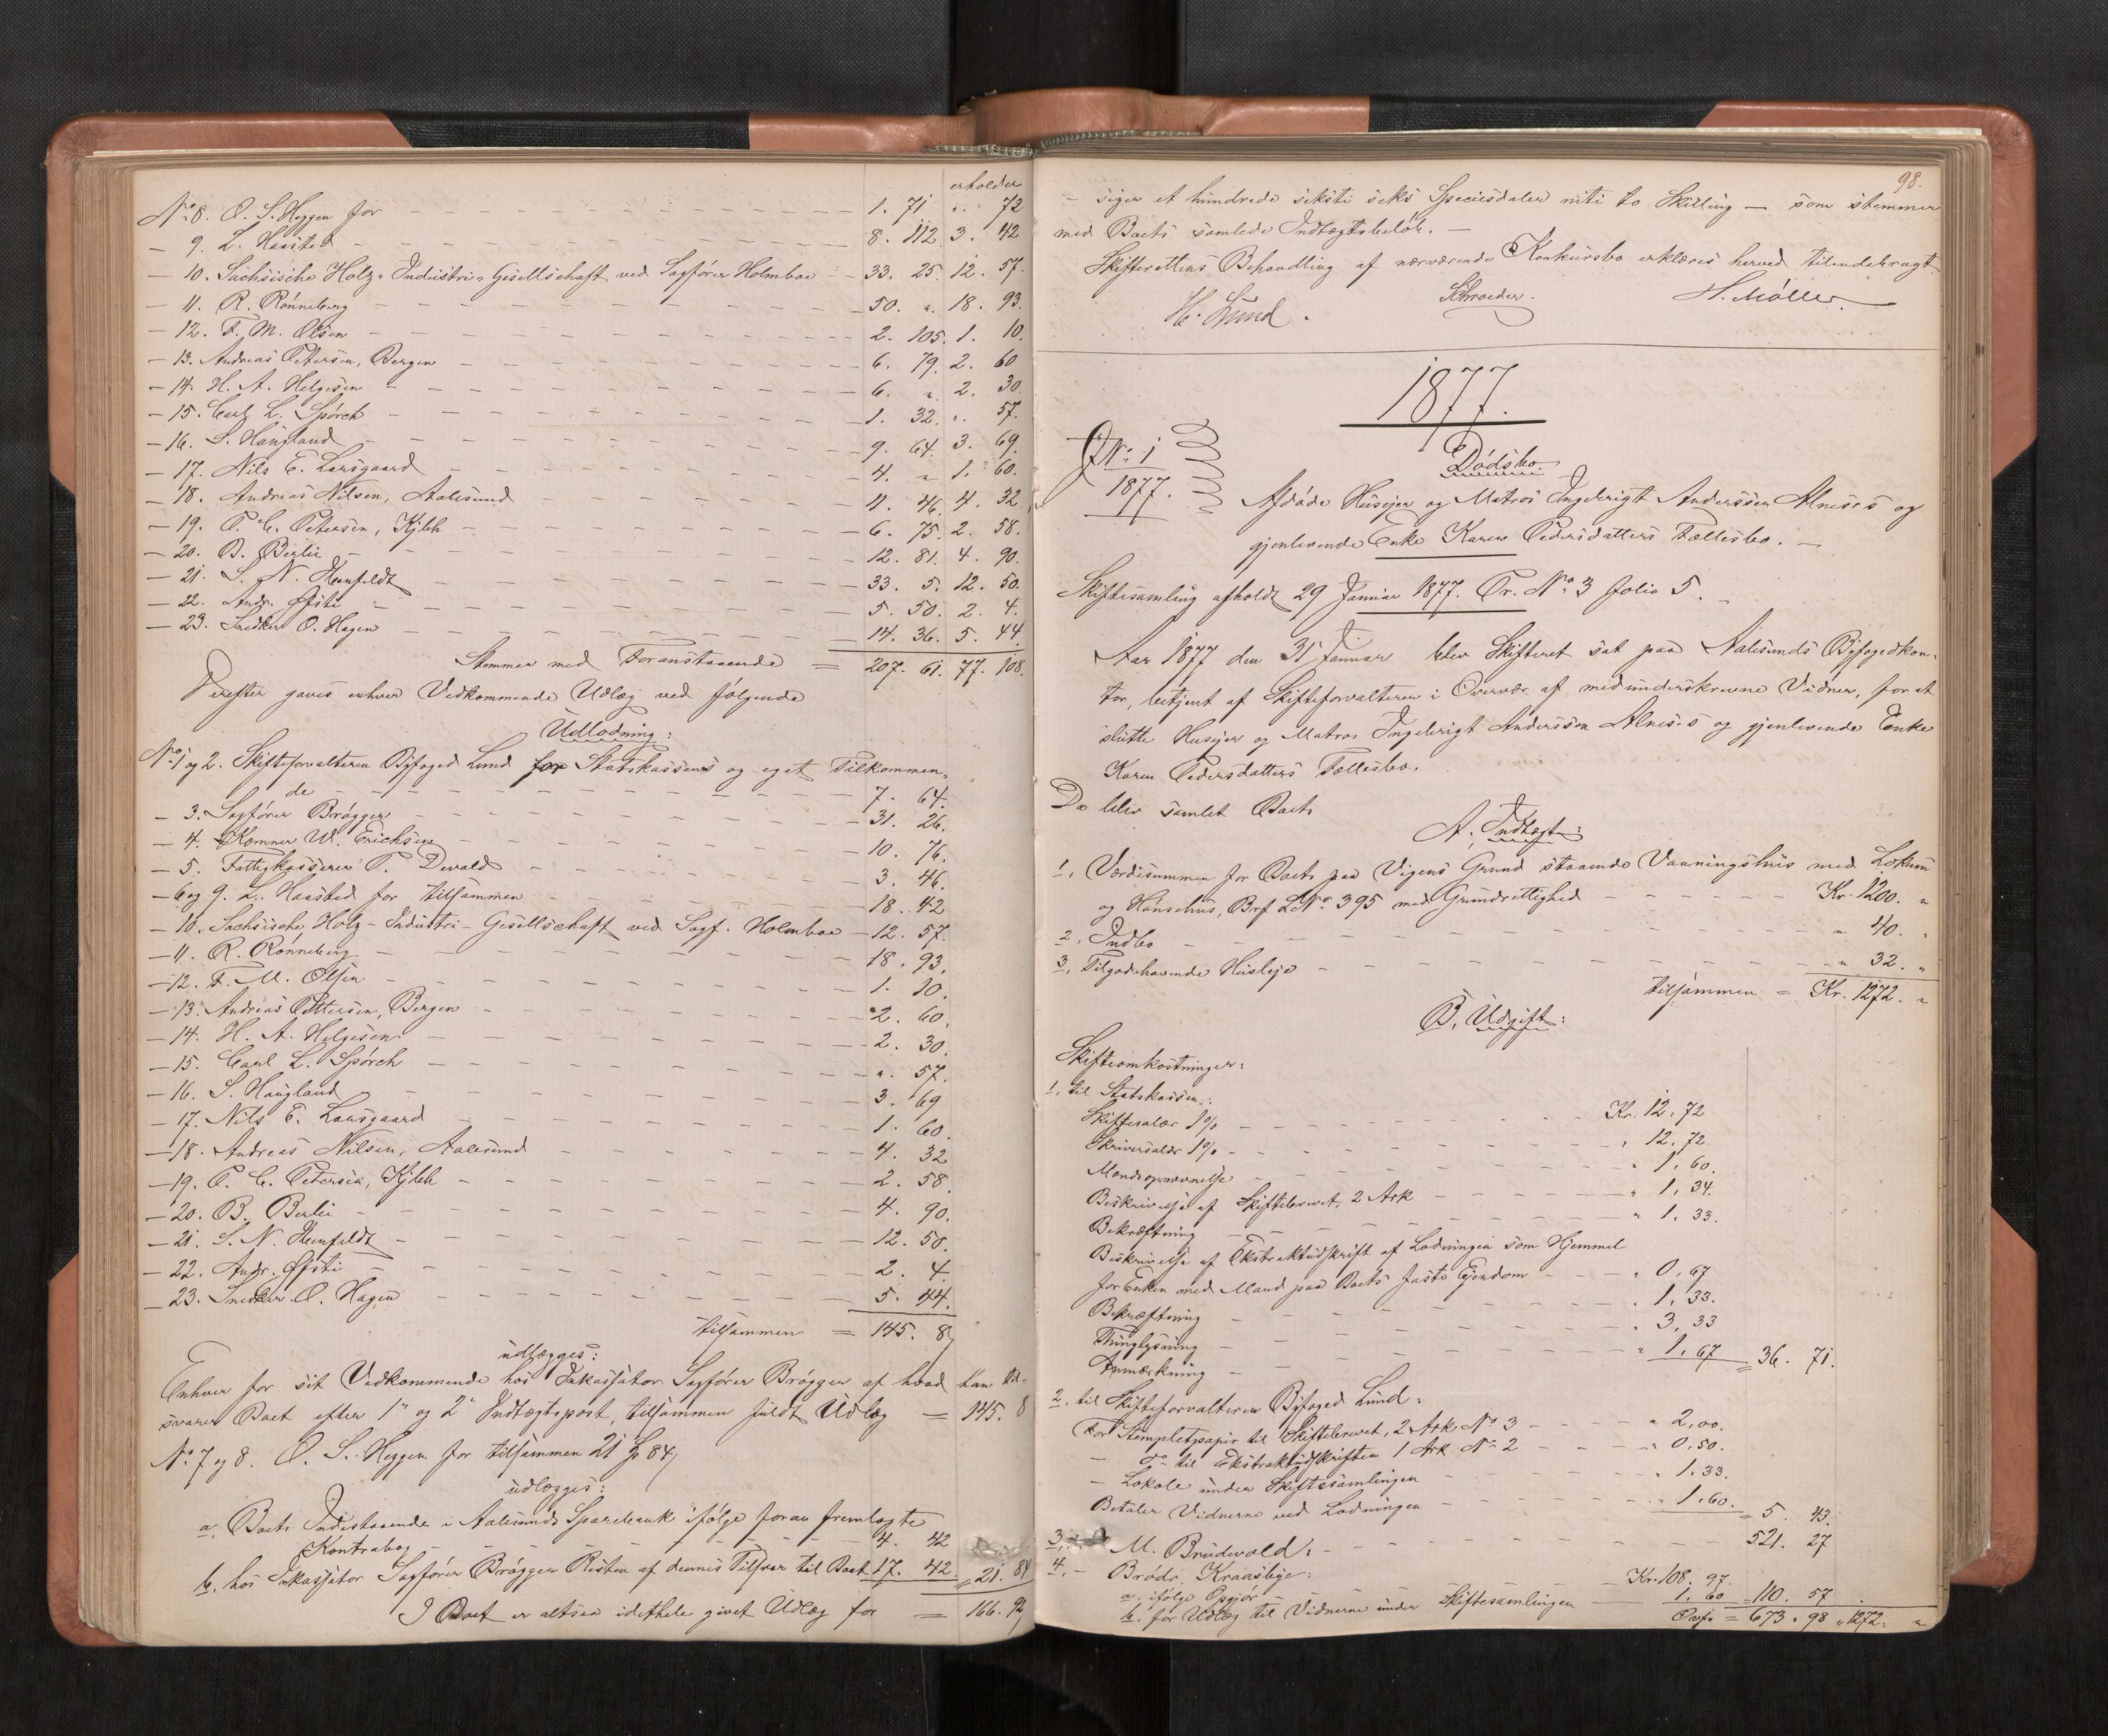 erholder
No 8. O. S. Heggen for 1. 71 " 72
— 9. L. Haasted 8. 112. 3. 42
— 10. Sächsische Holz-Industri-Gesellschaft ved Sagfører Holmboe 33. 25. 12. 57.
— 11. R. Rønneberg 50. " 18. 93.
— 12. F. M. Olsen 2. 105. 1. 10.
— 13. Andreas Petersen, Bergen 6. 79. 2. 60
— 14. H. A. Helgesen 6. " 2. 30.
— 15. Carl L. Spørck 1. 32. " 57.
— 16. S. Haugland 9. 64. 3. 69.
— 17. Nils E. Larsgaard 4. " 1. 60.
— 18. Andreas Nilsen, Aalesund 11. 46. 4. 32.
— 19. P. C. Petersen, Kjbh 6. 75. 2. 58.
— 20. B. Berlie 12. 81. 4. 90.
— 21. S. N. Kernfeldt 33. 5. 12. 50.
— 22. Andr. Øfsti 5. 50. 2. 4.
— 23. Snedker O. Hagen 14. 36. 5. 44
Stemmer med Foranstaaende = 207. 61. 77. 108.
Derefter gaves enhver Vedkommende Udlæg ved følgende
Udlodning:
No 1 og 2. Skifteforvalteren Byfoged Lund for Statskassens og eget Tilkommen-
de 7. 64.
— 3. Sagfører Brøgger 31. 26.
— 4. Kemner W. Erichsen 10. 76.
— 5. Fattigkasserer P. Devold 3. 46.
— 6 og 9. L. Haasted for tilsammen 18. 42
— 10. Sächsische Holz-Industri-Gesellschaft ved Sagf. Holmboe 12. 57.
— 11. R. Rønneberg 18. 93.
— 12. F. M. Olsen 1. 10.
— 13. Andreas Pettersen, Bergen 2. 60.
— 14. H. A. Helgesen 2. 30.
— 15. Carl L. Spørck " 57.
— 16. S. Haugland 3. 69
— 17. Nils E. Larsgaard 1. 60.
— 18. Andreas Nilsen, Aalesund 4. 32
— 19. P. C. Petersen, Kjbh 2. 58.
— 20. B. Berlie 4. 90.
— 21. S. N. Kernfeldt 12. 50.
— 22. Andr. Øfsti 2. 4.
— 23. Snedker O. Hagen 5. 44.
tilsammen = 145. 8
udlægges:
Enhver for sit Vedkommende hos Inkassator Sagfører Brøgger af hvad han til-
svarer Boet efter 1" og 2" Indtægtspost, tilsammen fuldt Udlæg = 145. 8
No 7 og 8. O. S. Heggen for tilsammen 21 Sp 84
udlægges:
a, Boets Indestaaende i Aalesunds Sparebank ifølge foran fremlagte
Kontrabog 4. 42
b, hos Inkassator Sagfører Brøgger Resten af dennes Tilsvar til Boet 17. 42. = 21. 84
I Boet er altsaa idethele givet Udlæg for = 166. 92
98.
— siger et hundrede seksti seks Speciesdaler niti to Skilling — som stemmer
med Boets samlede Indtægtsbeløb. —
Skifterettens Behandling af nærværende Konkursbo erklæres herved tilendebragt
H. Lund. Schroeder. H. Møller
1877.
No 1
1877.
Dødsbo.
Afdøde Huseier og Matros Ingebrigt Anderssen Alneses og
gjenlevende Enke Karen Pedersdatters Fællesbo. —
Skiftesamling afholdt 29 Januar 1877. Pr. No 3 folio 5.
Aar 1877 den 31 Januar blev Skifteret sat paa Aalesunds Byfogedkon-
tor, betjent af Skifteforvalteren i Overvær af medunderskrevne Vidner, for at
slutte Huseier og Matros Ingebrigt Anderssen Alneses og gjenlevende Enke
Karen Pedersdatters Fællesbo.
Da blev samlet Boets
A, Indtægt:
1, Værdisummen for Boets paa Vigens Grund staaende Vaaningshus med Lokum
og Hønsehus, Brf L No 395 med Grundrettighed Kr. 1200. "
2, Indbo " 40. "
3, Tilgodehavende Husleje " 32. "
tilsammen = Kr. 1272. "
B, Udgift:
Skifteomkostninger:
1, til Statskassen:
Skiftesalær 1% Kr. 12,72
Skriversalær 1% " 12,72
Mandsopnævnelse " 1,60.
Beskrivelse af Skiftebrevet, 2 Ark " 1,34.
Bekræftning " 1,33.
Beskrivelse af Ekstraktudskrift af Lodningen som Hjemmel
for Enken med Mand paa Boets faste Ejendom " 0,67
Bekræftning " 1,33.
Thinglysning " 3,33
Anmærkning " 1,67 = 36. 71.
2, til Skifteforvalteren Byfoged Lund:
For Stempletpapir til Skiftebrevet, 2 Ark No 3 " 2,00.
— do til Ekstraktudskriften 1 Ark No 2 " 0,50.
— Lokale under Skiftesamlingen " 1,33.
Betalte Vidnerne ved Lodningen " 1,60. = 5. 43.
3, M. Brudevold: 521. 27
4, — Brødr. Kraasbye:
a, ifølge Opgjør Kr. 108. 97.
b, for Udlæg til Vidnerne under Skiftesamlingen 1. 60 = 110. 57
Ovfr = 673. 98 " 1272. "